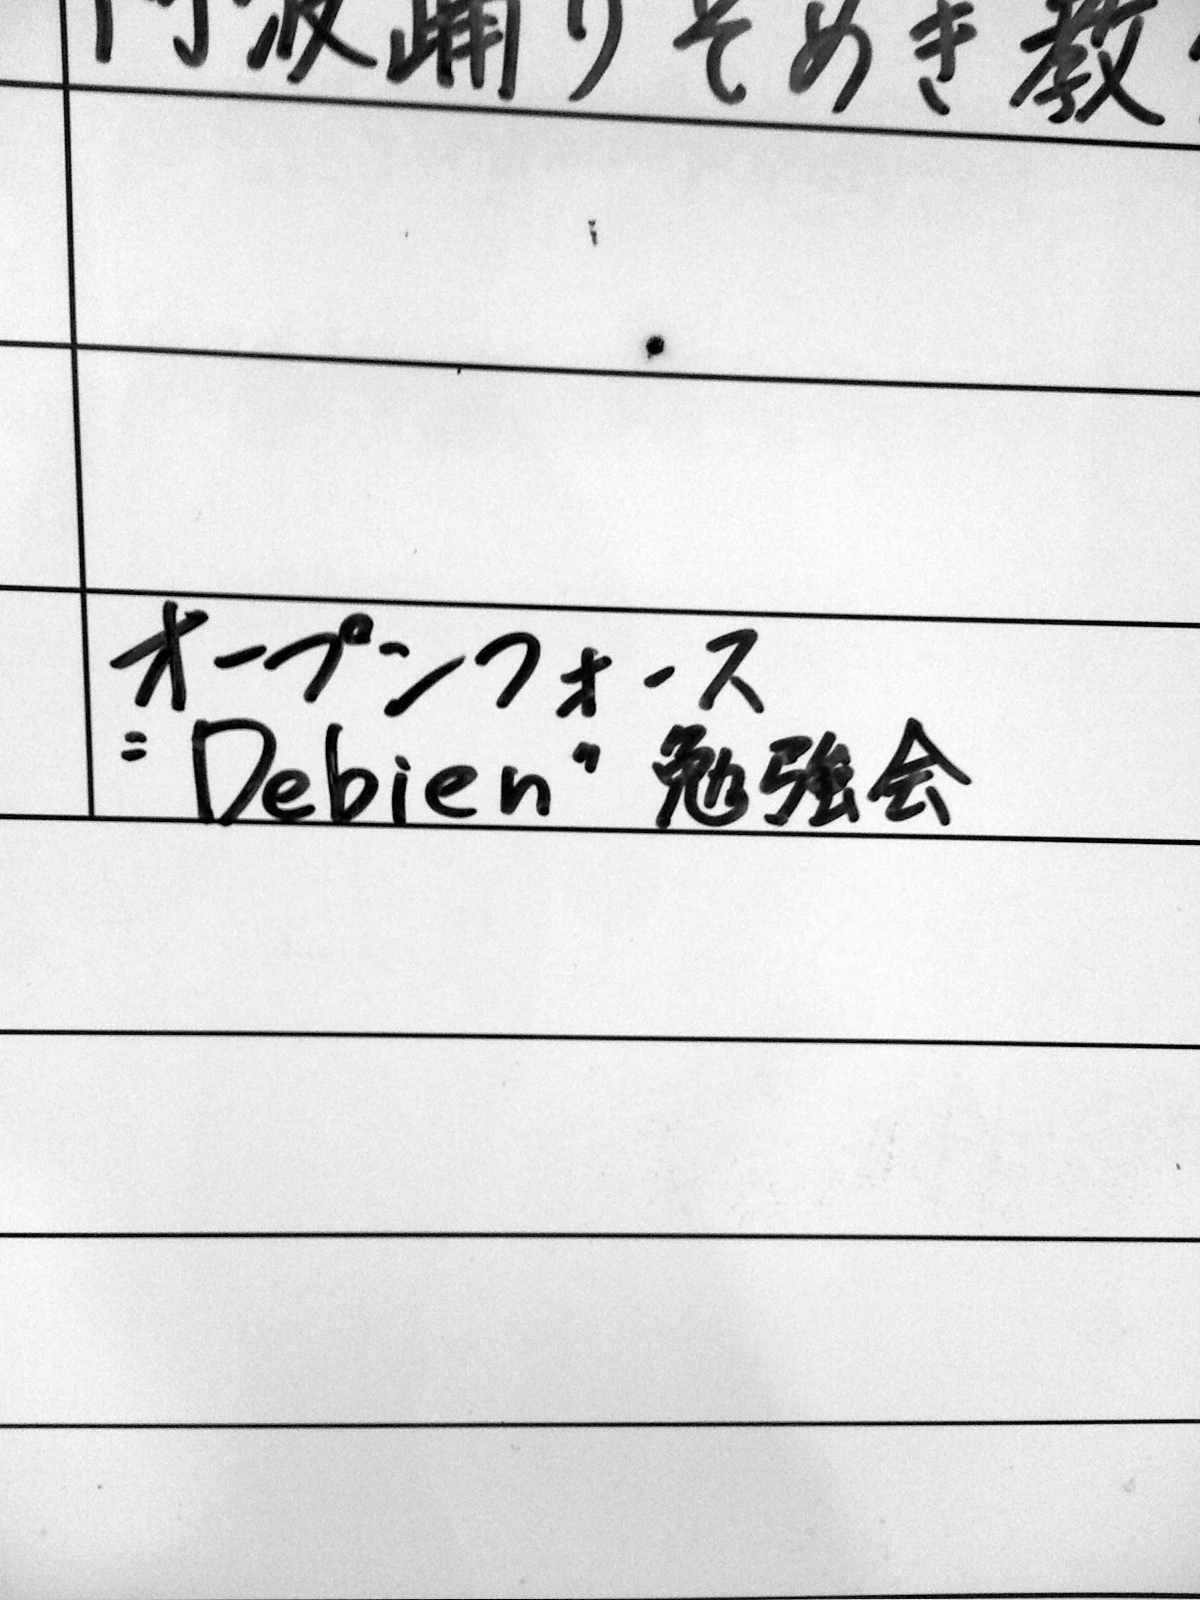 阿波踊りそめき教
オープンフォース
"Debien" 勉強会